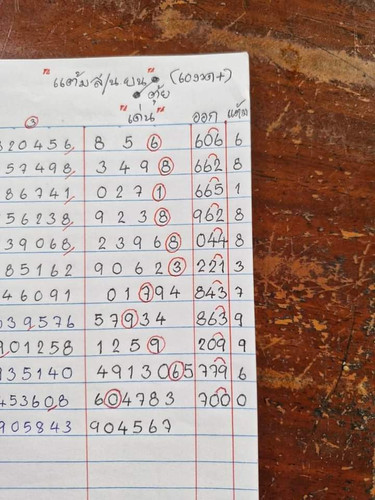 "แต้ม ส/น บน" (เอามา+)
วัย
③ "เด่น" ออก แต้ม
320456 8 5 6 606 6
57498 3 4 9 8 662 8
86741 0 2 7 1 665 1
56238 9 2 3 8 962 8
39068 2 3 9 6 8 044 8
85162 9 0 6 2 3 221 3
46091 0 1 7 9 4 843 7
039576 5 7 9 3 4 863 9
901258 1 2 5 9 209 9
935140 4 9 1 3 0 6 5 779 6
453608 6 0 4 7 8 3 700 0
905843 9 0 4 5 6 7